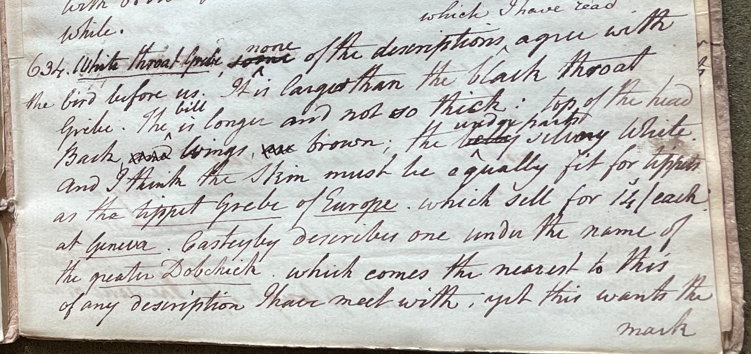 which I have read
while.
634. White throat Grebe, some none of the descriptions, agree with
the bird before us. It is larger than the black throat
Grebe. The bill is longer and not so thick: top of the head
Back, and wings, are brown; the belly under parts silvery white.
and I think the Skin must be equally fit for tippets
as the tippet Grebe of Europe. which sell for 14/ each
at Geneva. Castesby describes one under the name of
the greater Dobchick. which comes the nearest to this
of any description I have meet with, yet this wants the
mark